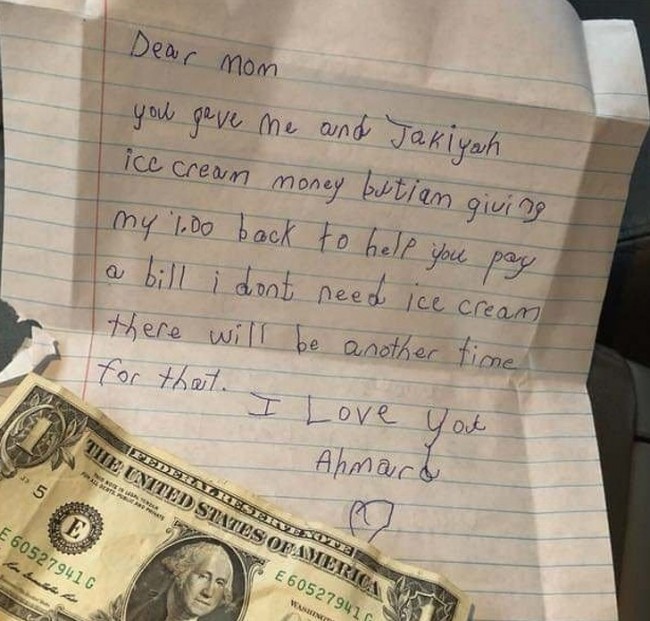 Dear Mom
you gave me and Jakiyah
ice cream money but iam giving
my 1.00 back to help you pay
a bill i dont need ice cream
there will be another time
for that.
I Love you
Ahmard
1
FEDERAL RESERVE NOTE
THE UNITED STATES OF AMERICA
THIS NOTE IS LEGAL TENDER
FOR ALL DEBTS, PUBLIC AND PRIVATE
5
E
E 60527941 G
E 60527941 G
WASHING
1